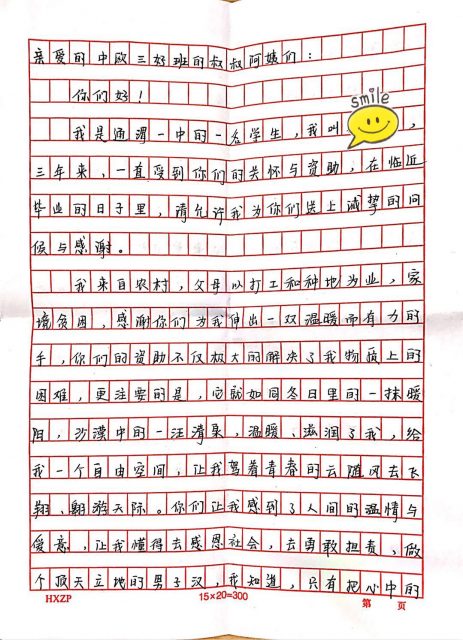 亲爱的中欧三好班的叔叔阿姨们：
你们好！
smile
我是通渭一中的一名学生，我叫，
三年来，一直受到你们的关怀与资助，在临近
毕业的日子里，请允许我为你们送上诚挚的问
候与感谢。
我来自农村，父母以打工和种地为业，家
境贫困，感谢你们为我伸出一双温暖而有力的
手，你们的资助不仅极大的解决了我物质上的
困难，更注要的是，它就如同冬日里的一抹暖
阳，沙漠中的一汪清泉，温暖、滋润了我，给
我一个自由空间，让我驾着青春的云随风去飞
翔、翱游天际。你们让我感到了人间的温情与
爱意，让我懂得去感恩社会，去勇敢担责，做
个顶天立地的男子汉，我知道，只有把心中的
HXZP 15×20=300 第 页